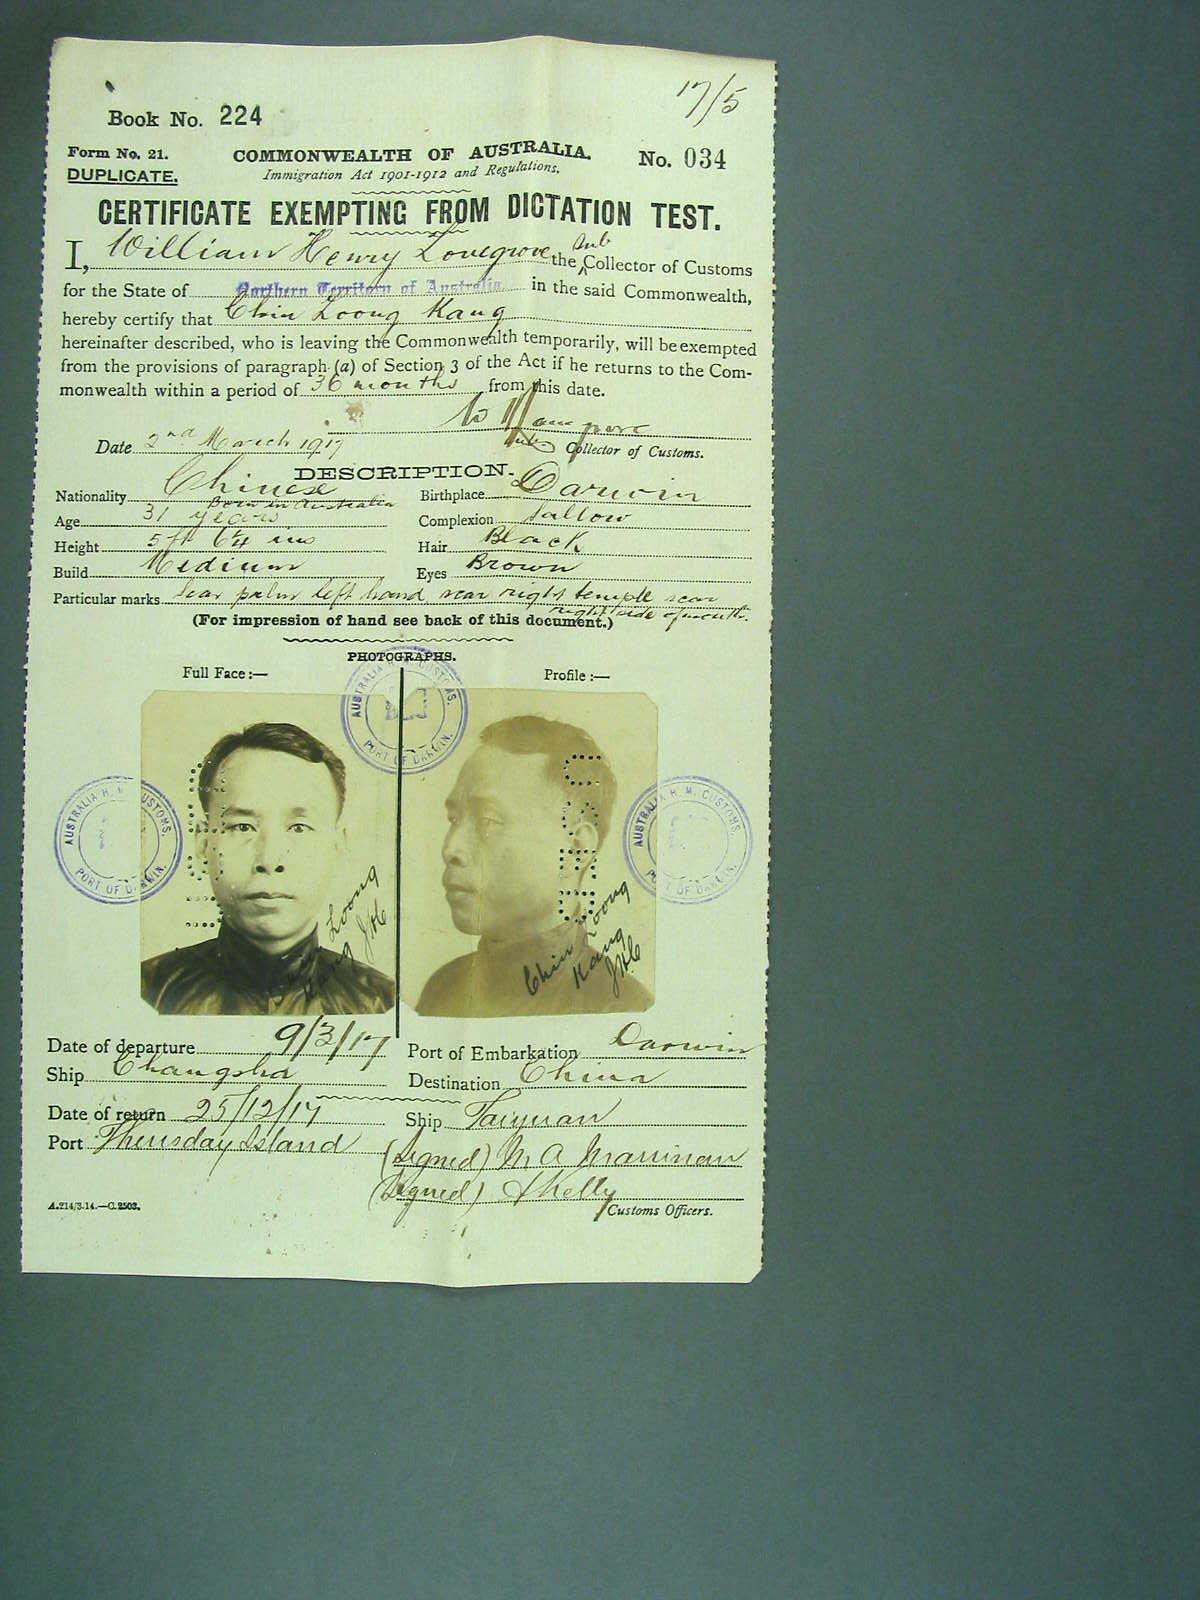 17/5
Book No. 224
Form No. 21.
DUPLICATE.
COMMONWEALTH OF AUSTRALIA.
Immigration Act 1901-1912 and Regulations.
No. 034
CERTIFICATE EXEMPTING FROM DICTATION TEST.
I, William Henry Lovegrove the Sub Collector of Customs
for the State of Northern Territory of Australia in the said Commonwealth,
hereby certify that Chin Loong Kang
hereinafter described, who is leaving the Commonwealth temporarily, will be exempted
from the provisions of paragraph (a) of Section 3 of the Act if he returns to the Com-
monwealth within a period of 36 months from this date.
Date 2nd March 1917
Sub Collector of Customs.
DESCRIPTION.
Nationality Chinese Born in Australia
Birthplace Darwin
Age 31 years
Complexion Sallow
Height 5 ft 6¼ ins
Hair Black
Build Medium
Eyes Brown
Particular marks Scar palm left hand, scar right temple scar
right side of mouth.
(For impression of hand see back of this document.)
PHOTOGRAPHS.
Full Face :—
Profile :—
AUSTRALIA H. M. CUSTOMS.
PORT OF DARWIN.
AUSTRALIA H. M. CUSTOMS.
PORT OF DARWIN.
AUSTRALIA H. M. CUSTOMS.
PORT OF DARWIN.
USED
Loong
Kang
JHC
Chin Loong
Kang
JHC
Date of departure 9/3/17
Port of Embarkation Darwin
Ship Changsha
Destination China
Date of return 25/12/17
Ship Taiyuan
Port Thursday Island
(Signed) M A
(Signed) Kelly
Customs Officers.
A.214/3.14.—C.2503.